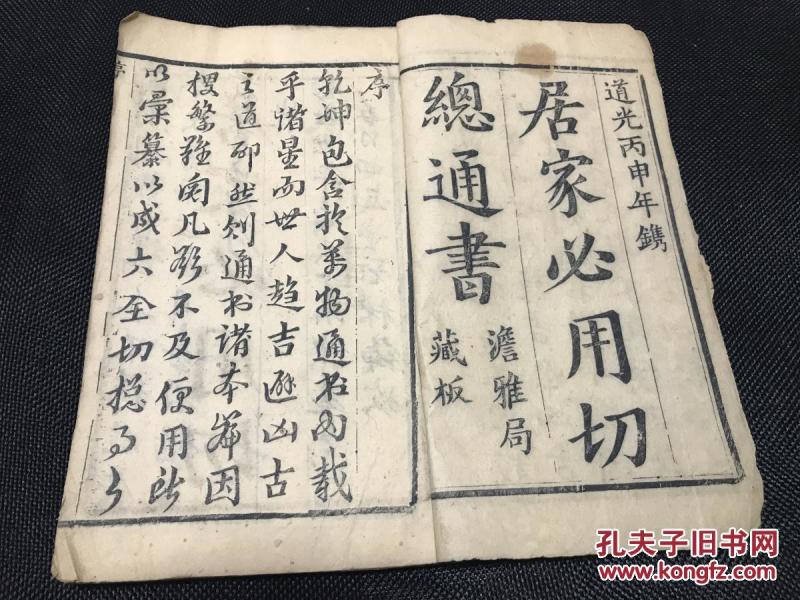 道光丙申年鐫
居家必用切
總通書
澹雅局
藏板
序
乾坤包含於萬物通書內載
乎諸星而世人趨吉避凶古
之道邵然則通書諸本

搜繁難閱凡欲不及便用所
以彙纂以成六全切總
孔夫子旧书网
www.kongfz.com